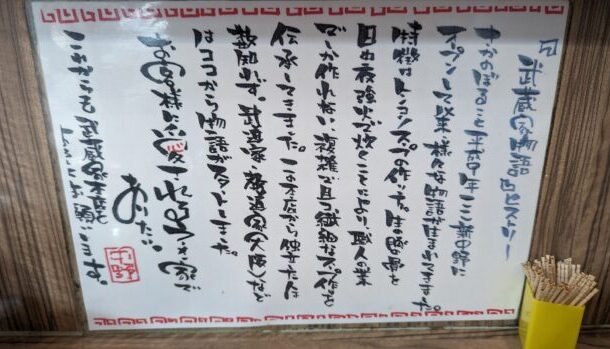 武蔵家物語 凸凹ストーリー
さかのぼること平成 年ここ新中野に
オープンして以来 様々な物語が生まれてきました。
特徴はトンコツスープの作り方。生の豚骨を
日夜強火で炊くことにより、職人の業
でしか作れない、複雑で且つ繊細なスープ作りを
伝承してきました。この本店から独立した人は
数知れず。武道家、 道家(大阪)など
はココから物語がスタートしました。
お客様に愛される 家で
ありたい。
これからも武蔵家本店を
よろしくお願いします。
中野